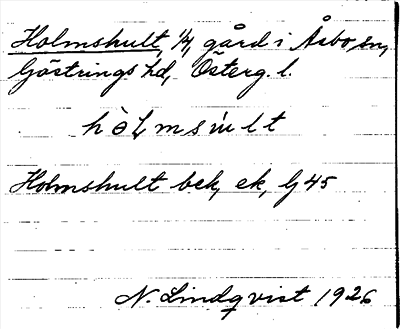 Holmshult, 1/4, gård i Åsbo sn,
Göstrings hd, Österg. l.
Holmshult bek, ek, lj 45
N. Lindqvist 1926